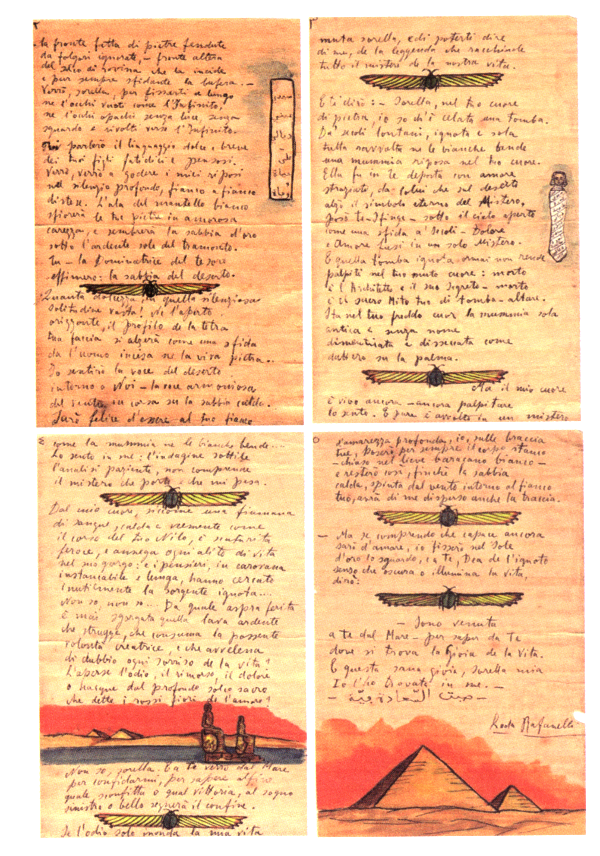 la fronte fitta di pietre fendute
da folgori ignorate, - fronte altera
del solco di rovina che la incide
e pur sempre sfidante la bufera. -
Verrò, sorella, per fissarti a lungo
ne l'occhi vuoti come l'Infinito!
ne l'occhi opachi senza luce, senza
sguardo e rivolti verso l'Infinito.
parlerò il linguaggio dolce e breve
dei tuoi figli fatidici e pensosi.
Verrò, verrò a godere i miei riposi
nel silenzio profondo, fianco a fianco
distese. L'ala del mantello bianco
sfiorerà le tue pietre in amorosa
carezza, e sembrerà la sabbia d'oro
sotto l'ardente sole del tramonto.
Tu - la Dominatrice del tesoro
effimero: la sabbia del deserto.
Quanta dolcezza in quella silenziosa
solitudine vasta! ne l'aperto
orizzonte, il profilo de la tetra
tua faccia si alzerà come una sfida
da l'uomo incisa ne la viva pietra..
Io sentirò la voce del deserto
intorno a Noi - la voce armoniosa
del vento in corsa su la sabbia calda.
Sarò felice d'essere al tuo fianco
muta sorella, e di poterti dire
di me, de la leggenda che racchiude
tutto il mistero de la nostra vita.
E ti dirò: - Sorella, nel tuo cuore
di pietra, io so ch'è celata una tomba.
Da secoli lontani, ignota e sola
tutta ravvolta ne le bianche bende
una mummia riposa nel tuo cuore.
Ella fu in te deposta con amore
da Colui che sul deserto
alzò il simbolo eterno del Mistero,
pose te - Sfinge - sotto il cielo aperto
come una sfida a' Secoli - Dolore
e Amore fusi in un solo Mistero.
E quella tomba ignota ormai non rende
palpiti nel tuo muto cuore: morto
è l'Architetto e il suo segreto - morto
è il sacro Mito tuo di tomba-altare.
Sta nel tuo freddo cuor la mummia sola
antica e senza nome
dimenticata e disseccata come
dattero su la palma.
Ma il mio cuore
è vivo ancora - ancora palpitare
lo sento. E pure è avvolto in un mistero
come la mummia ne le bianche bende...
Lo sento in me; l'indagine sottile
l'analisi paziente, non comprende
il mistero che porto e che mi pesa.
Dal mio cuor, siccome una fiumana
di sangue, calda e veemente come
il corso del tuo Nilo, è scaturita
feroce, e annega ogni alito di vita
nel suo gorgo: e i pensieri, in carovana
instancabile e lunga, hanno cercato
inutilmente la sorgente ignota...
Non so, non so... Da quale aspra ferita
è mai sgorgata quella lava ardente
che strugge, che consuma la possente
volontà creatrice, e che avvelena
di dubbio ogni sorriso de la vita?
L'aperse l'odio, il rimorso, il dolore
o nacque dal profondo solco sacro
che dette i rossi fiori de l'amore?
Non so, sorella. E a te verrò dal Mare
per confidarmi, per sapere alfine
quale sconfitta o qual vittoria, al sogno
sinistro o bello segnerà il confine.
Se l'odio solo monda la mia vita
d'amarezza profonda, io, sulle braccia
tue, poserò per sempre il corpo stanco
- chiuso nel lieve baracano bianco -
e resterò così, finché la sabbia
calda, spinta dal vento intorno al fianco
tuo, avrà di me disperso anche la traccia.
- Ma se comprendo che capace ancora
sarò d'amare, io fisserò nel Sole
d'oro lo sguardo, e a Te, Dea de l'ignoto
senso che oscura o illumina la vita,
dirò:
- Sono venuta
a te dal Mare - per saper da Te
dove si trova la Gioia de la Vita.
E questa sana gioia, sorella mia
Io l'ho trovata in me. -
Leda Rafanelli